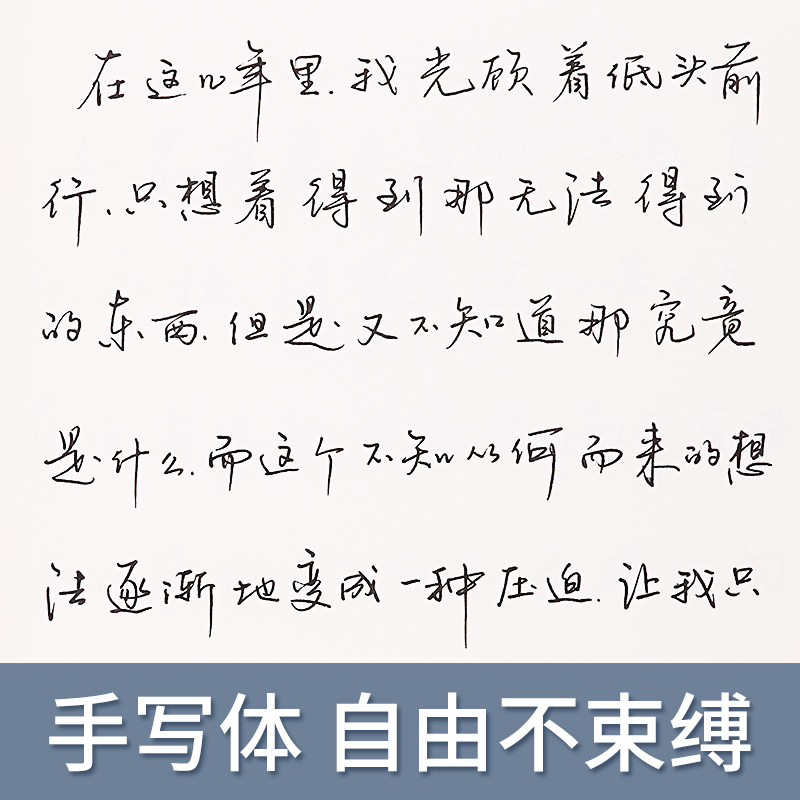 在这几年里.我光顾着低头前
行.只想着得到那无法得到
的东西.但是又不知道那究竟
是什么.而这个不知从何而来的想
法逐渐地变成一种压迫.让我只
手写体 自由不束缚